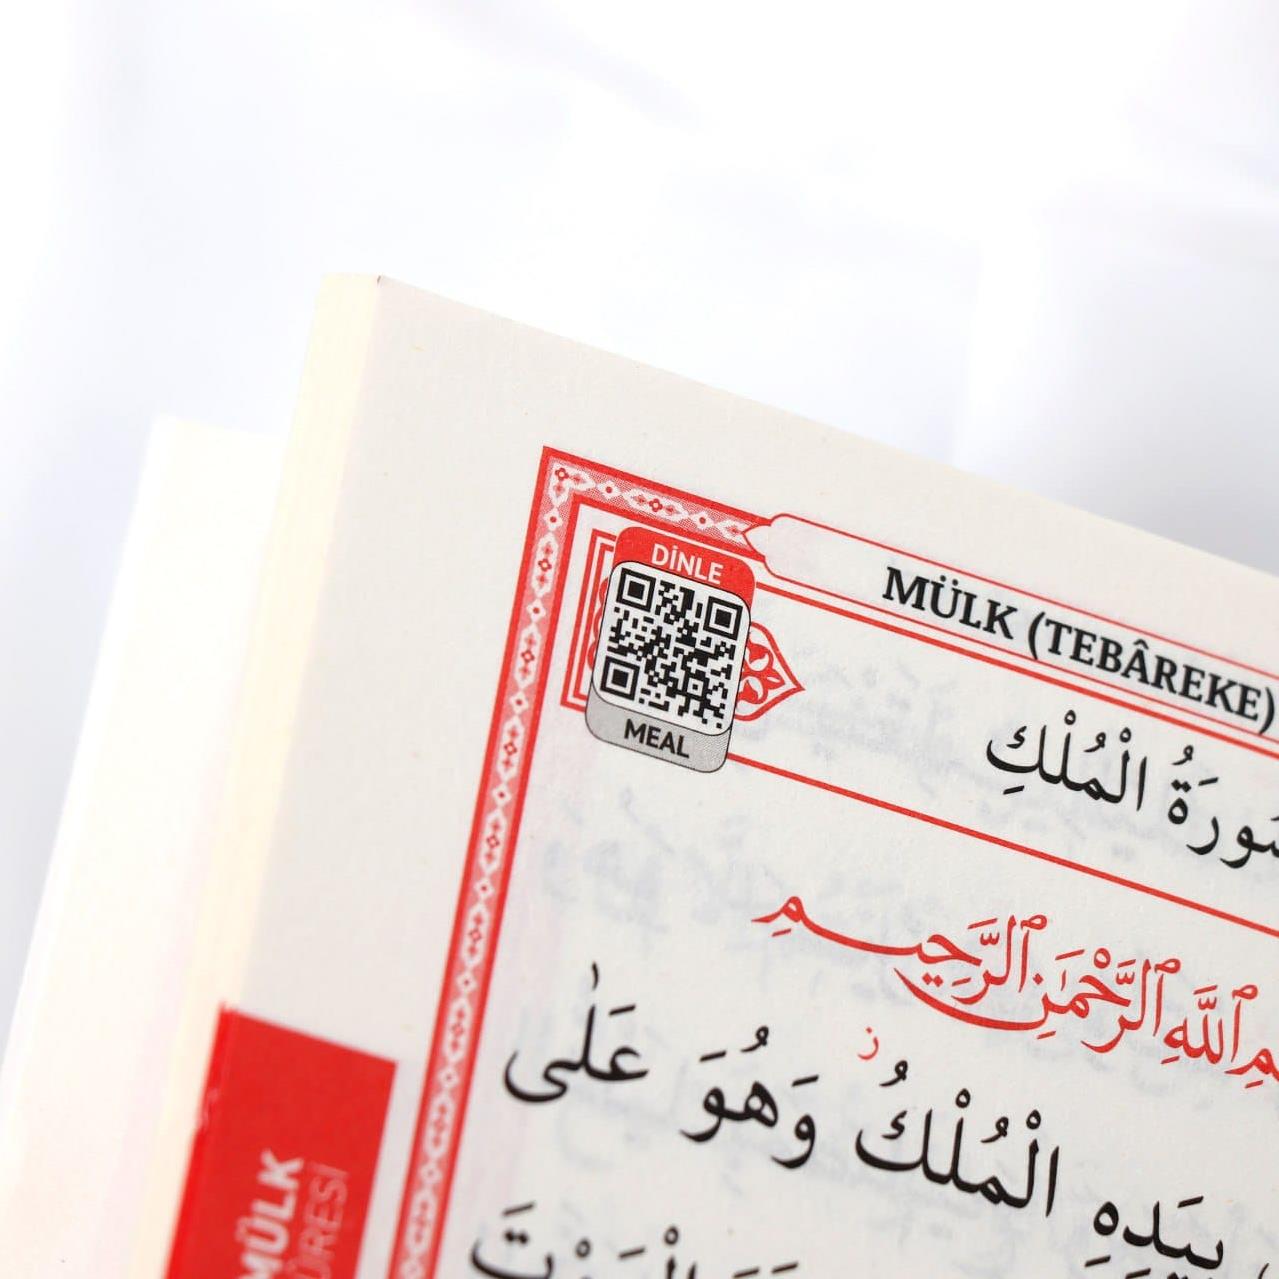 DİNLE
MEAL
MÜLK (TEBÂREKE)
سُورَةُ الْمُلْكِ
اللّٰهِ الرَّحْمٰنِ الرَّحٖيمِ
بِيَدِهِ الْمُلْكُ ز وَهُوَ عَلٰى
MÜLK
SÛRESİ